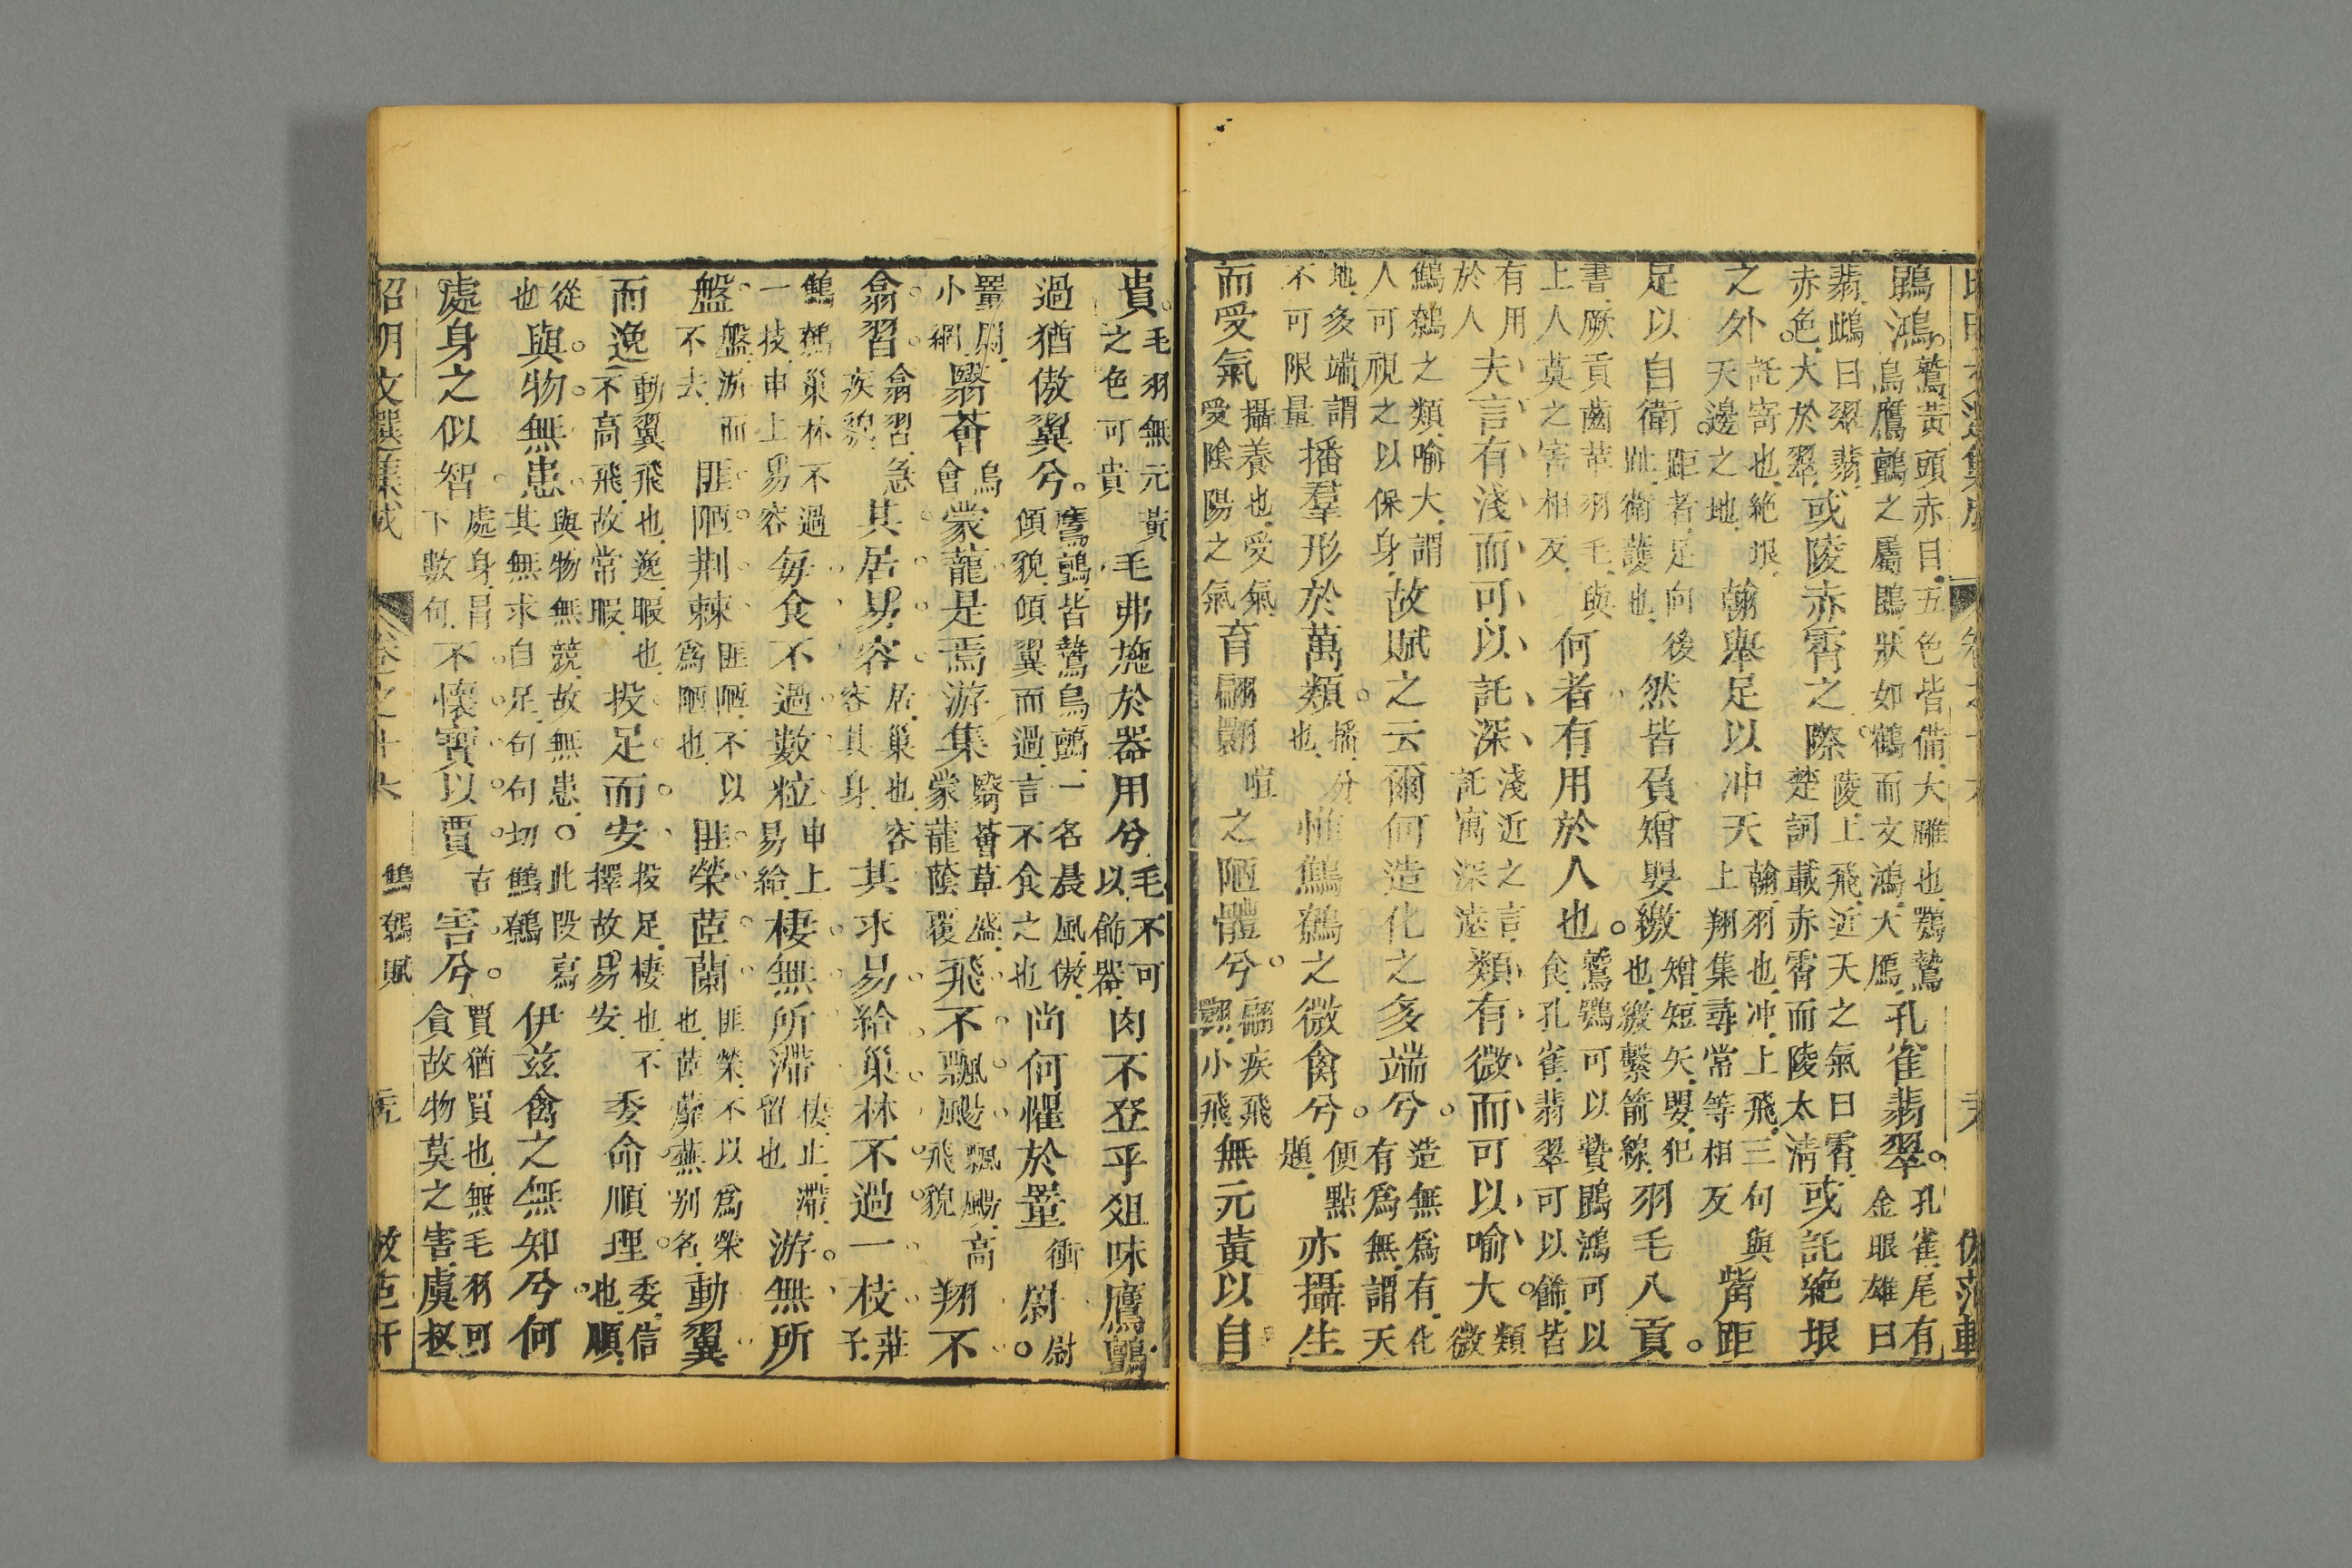 鵾鴻。鷲黃頭赤目五色皆備大雕也鶚鷙鳥鷹鸇之屬鵾狀如鶴而文鴻大鴈孔雀翡翠。孔雀尾有金眼雄曰
翡雌曰翠翡赤色大於翠或陵赤霄之際。陵上飛近天之氣曰霄楚詞載赤霄而陵太清或託絶垠
之外。託寄也絶垠天邊之地翰舉足以冲天翰羽也冲上飛三句與上翔集尋常等相反觜距
足以自衛。距者足向後趾衛護也然皆負矰嬰繳矰短矢嬰犯也繳繫箭線羽毛入貢。
書厥貢齒革羽毛與上人莫之害相反何者有用於人也。鷲鶚可以贄鵾鴻可以食孔雀翡翠可以飾皆
有用於人夫言有淺而可以託深淺近之言託寓深遠類有微而可以喻大。類微
鷦鷯之類喻大謂人可視之以保身故賦之云爾何造化之多端兮。造無爲有化有爲無謂天
地多端謂不可限量播羣形於萬類。播分也惟鷦鷯之微禽兮。便點題亦攝生
而受氣攝養也受氣受陰陽之氣育翩翾喧之陋體兮。翩疾飛翾小飛無元黃以自
貴。毛羽無元黃之色可貴毛弗施於器用兮毛不可以飾器肉不登乎俎味鷹鸇
過猶傲翼兮。鷹鸇皆鷙鳥鸇一名晨風傲傾貌傾翼而過言不食之也尚何懼於罿衝罻。尉
罿罻小網翳薈烏會蒙蘢是焉游集翳薈草盛蒙蘢蔭覆飛不飄颺飄颺高風飛貌翔不
翕習。翕習急疾貌其居易容居巢也容容其身其求易給巢林不過一枝莊子
鷦鷯巢林不過一技申上易容每食不過數粒申上易給棲無所滯棲止滯留也游。無所
盤。盤游而不去匪陋荆棘匪陋不以爲陋也匪榮茝蘭匪榮不以爲榮也茝蘼蕪别名動翼
而逸動翼飛也逸暇也不高飛故常暇投足而安投足棲也不擇故易安委命順理。委信也順
從也與物無患。與物無競故無患。此段寫其無求自足句句切鷦鷯伊兹禽之無知兮。何
處身之似智。處身冒下數句不懷寳以賈古害兮。賈猶買也無毛羽可貪故物莫之害虞叔
昭明文選集成 卷之十六 鷦鷯賦 倣范軒